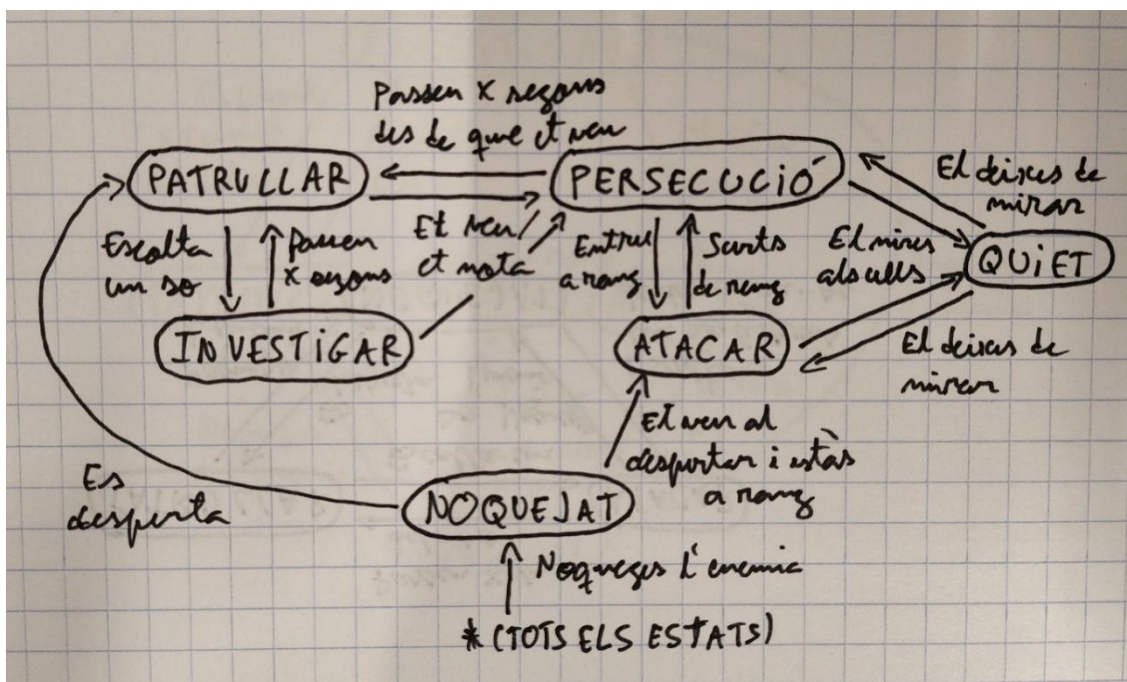 Passen X segons
des de que et veu
PATRULLAR
PERSECUCIÓ
El deixes de
mirar
Escolta
un so
Passen
X segons
Et veu/
et nota
Entres
a rang
Surts
de rang
El mires
als ulls
QUiET
INVESTiGAR
ATACAR
El deixes de
mirar
Et veu al
despertar i estàs
a rang
Es
desperta
NOQUEJAT
Noqueges l'enemic
* (TOTS ELS ESTATS)